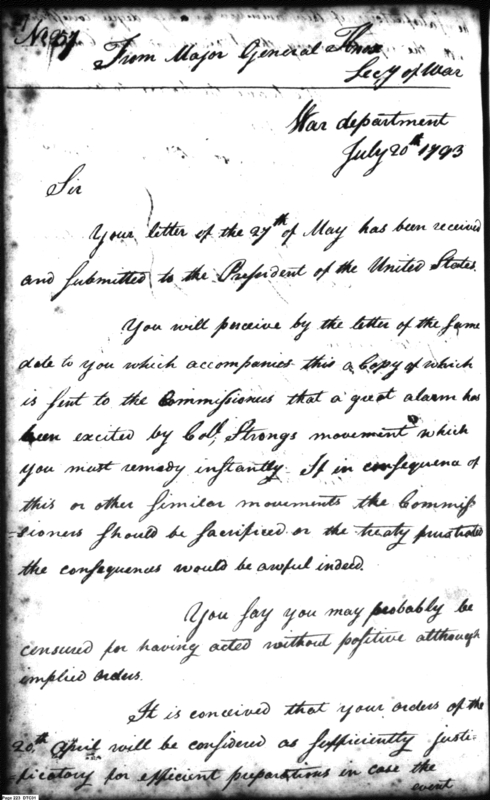 No. 57.
From Major General Knox
Secy of War
War department
July 20th 1793
Sir
Your letter of the 27th of May has been received
and submitted to the President of the United States.
You will perceive by the letter of the same
date to you which accompanies this a Copy of which
is sent to the Commissioners that a great alarm has
been excited by Coll. Strongs movement which
you must remedy instantly. If in consequence of
this or other similar movements the Commis-
=sioners should be sacrificed or the treaty frustrated
the consequences would be awful indeed.
You say you may probably be
censured for having acted without positive although
implied orders.
It is conceived that your orders of the
20th April will be considered as sufficiently justi-
=ficatory for efficient preparations in case the
event
Page 223 DTC01